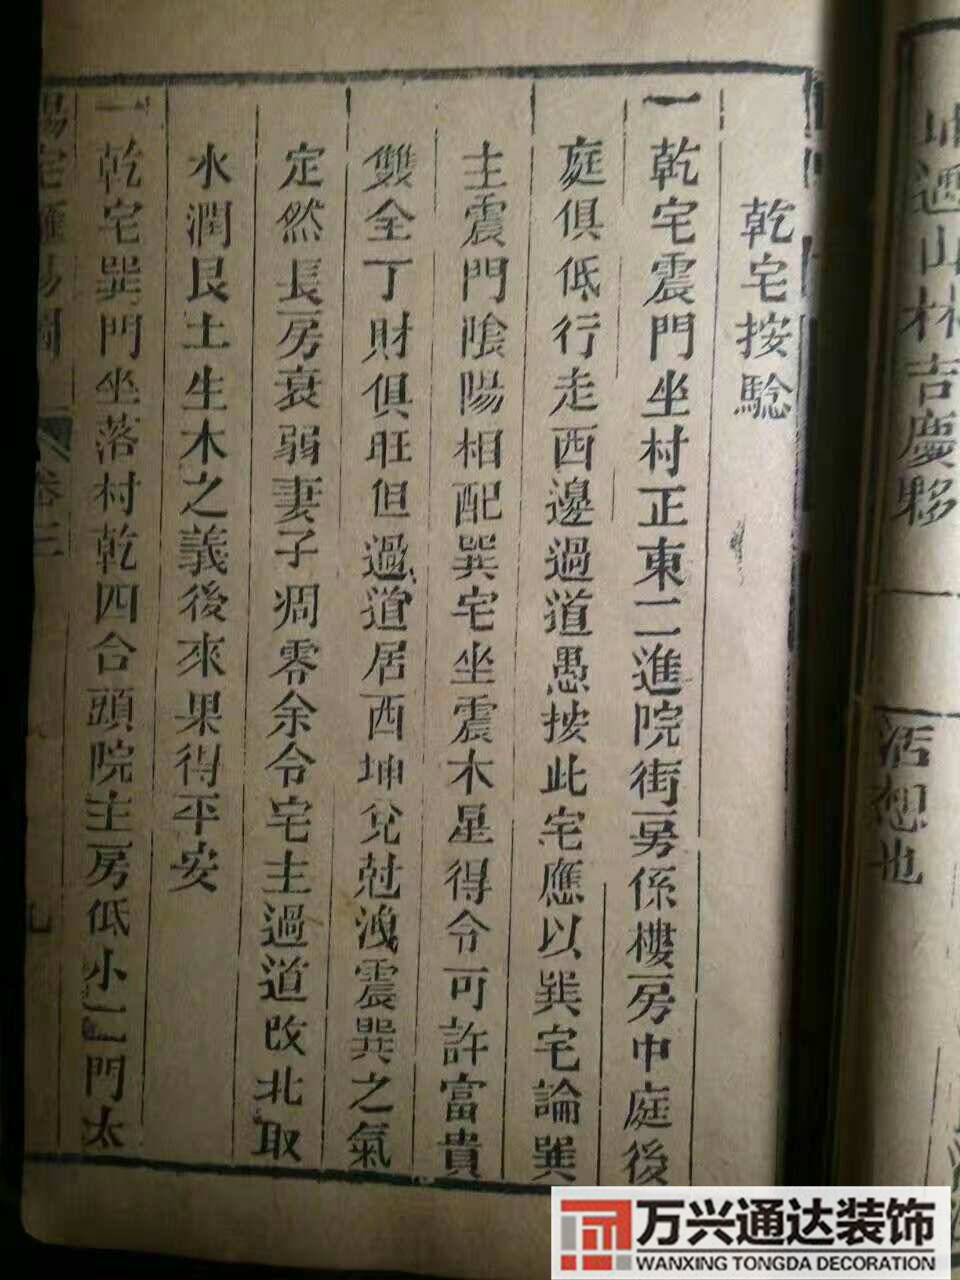 坤遇山林吉慶夥
活想也
乾宅按驗
一乾宅震門坐村正東二進院街房係樓房中庭後
庭俱低行走西邊過道愚按此宅應以巽宅論巽
主震門陰陽相配巽宅坐震木星得令可許富貴
雙全丁財俱旺但過道居西坤兌尅洩震巽之氣
定然長房衰弱妻子凋零余令宅主過道改北取
水潤艮土生木之義後來果得平安
一乾宅巽門坐落村乾四合頭院主房低小二門太
陽宅 易圖 卷三 九
万兴通达装饰
WANXING TONGDA DECORATION